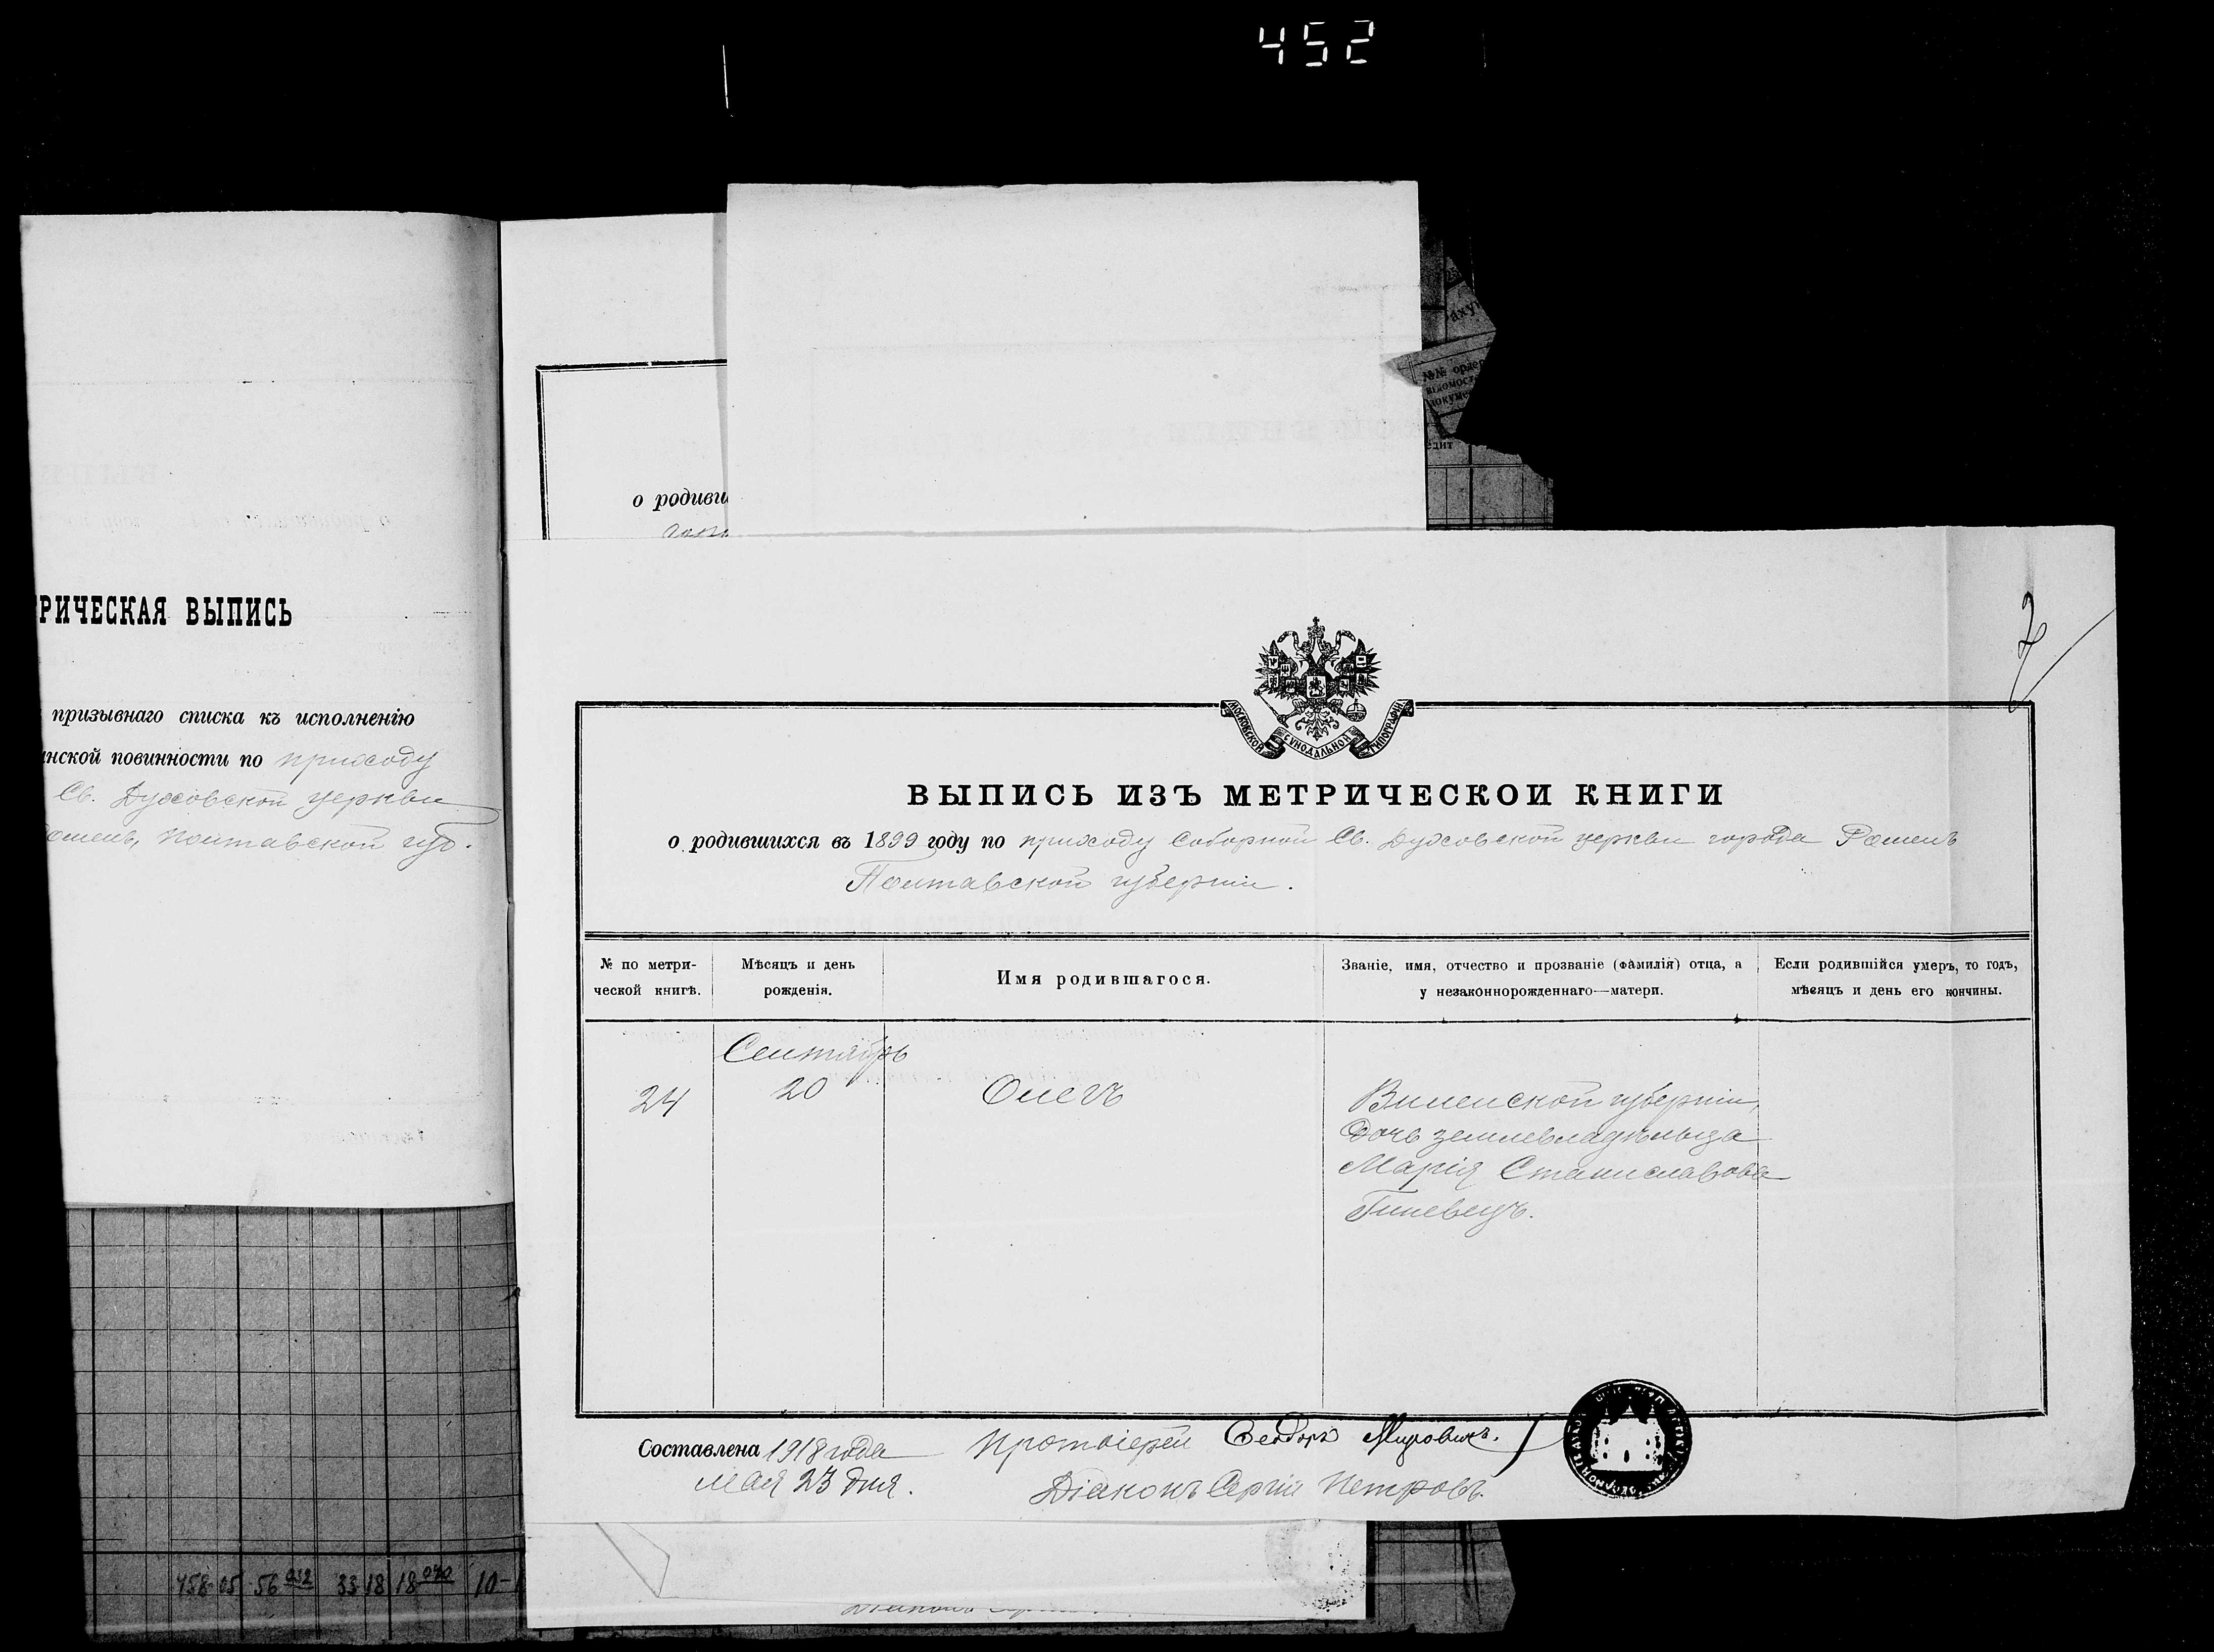 452
РИЧЕСКАЯ ВЫПИСЬ
призывнаго списка къ исполненію
нской повинности по приходу
Св. Духовской церкви
Ромень, Полтавской губ.
о родивш
№№ ордер
МОСКОВСКОЙ СѴНОДАЛЬНОЙ ТИПОГРАФІИ
ВЫПИСЬ ИЗЪ МЕТРИЧЕСКОИ КНИГИ
о родившихся въ 1899 году по приходу Соборной Св. Духовской церкви города Роменъ
Полтавской губерніи.
№ по метри-
ческой книгѣ.
Мѣсяцъ и день
рожденія.
Имя родившагося.
Званіе, имя, отчество и прозваніе (фамилія) отца, а
у незаконнорожденнаго—матери.
Если родившійся умеръ, то годъ,
мѣсяцъ и день его кончины.
24
Сентябрь
20
Олегъ
Виленской губерніи,
дочь землевладѣльца
Марія Станиславова
Гиневецъ.
Составлена 1918 года
мая 23 дня.
Протоіерей Ѳеодоръ
Діаконъ Сергій Петровъ.
458 05 56 032 33 18 18 040 10-